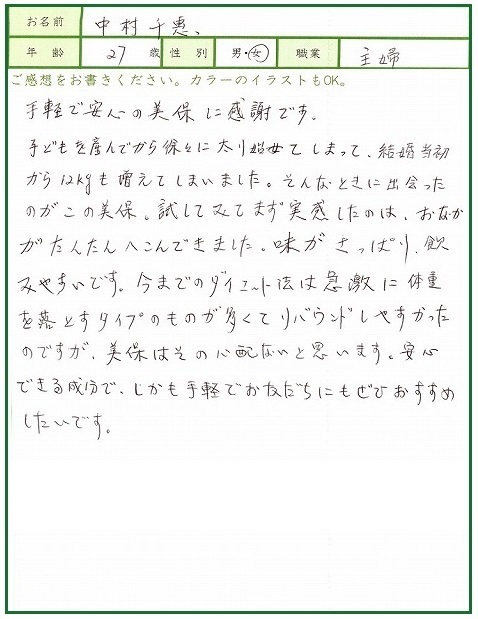 お名前 中村千恵、
年齢 27 歳 性別 男・女 職業 主婦
ご感想をお書きください。カラーのイラストもOK。
手軽で安心の美保に感謝です。
子どもを産んでから徐々に太り始めてしまって、結婚当初
から12kgも増えてしまいました。そんなときに出会った
のがこの美保。試してみてまず実感したのは、おなか
がだんだんへこんできました。味がさっぱり、飲
みやすいです。今までのダイエット法は急激に体重
を落とすタイプのものが多くてリバウンドしやすかった
のですが、美保はその心配ないと思います。安心
できる成分で、しかも手軽でお友だちにもぜひおすすめ
したいです。